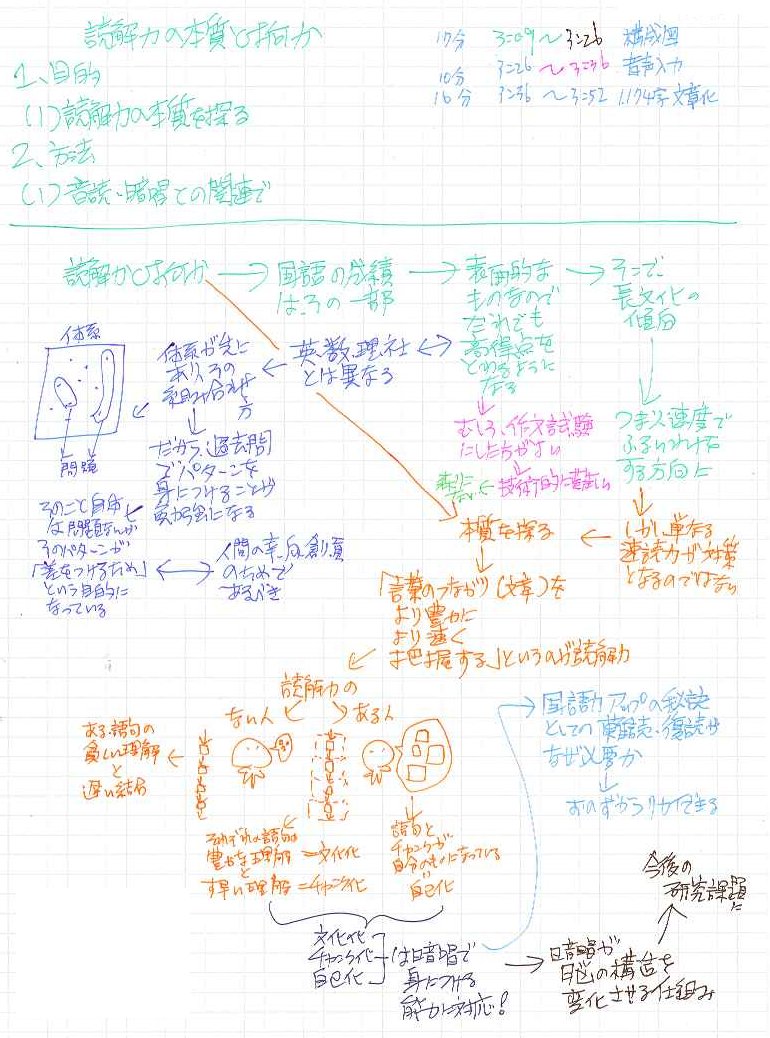 読解力の本質とは何か
17分 3:09〜3:26 構成図
10分 3:26〜3:36 音声入力
16分 3:36〜3:52 1,174字文章化
1、目的
(1)読解力の本質を探る
2、方法
(1)音読・暗唱との関連で
読解力とは何か
国語の成績
は、その一部
表面的な
ものなので
だれでも
高得点を
とれるように
なる
そこで、
長文化の
傾向
英、数、理、社
とは異なる
体系が先に
あり、その
組み合わせ
方
体系
問題
だから、過去問
でパターンを
身につけることが
勉強になる
むしろ、作文試験
にした方がよい
技術的に難しい
つまり速度で
ふるいわけを
する方向に
そのこと自体
は問題ないが
そのパターンが
「差をつけるため」
という目的に
なっている
人間の幸、向、創、貢
のためで
あるべき
本質を探る
しかし、単なる
速読力が対策
となるのではない
「言葉のつながり(文章)を
より豊かに
より速く
把握する」というのが読解力
読解力の
ない人
ある人
ある語句の
貧しい理解
と
遅い結合
それぞれの語句の
豊かな理解=文化化
と
す早い理解=チャンク化
語句と
チャンクが
自分のものになっている
自己化
国語力アップの秘訣
としての難読・復読が
なぜ必要か
おのずからリサイできる
文化化
チャンク化
自己化
は暗唱で
身につける
能力に対応!
暗唱が
脳の構造を
変化させる仕組み
今後の
研究課題
に